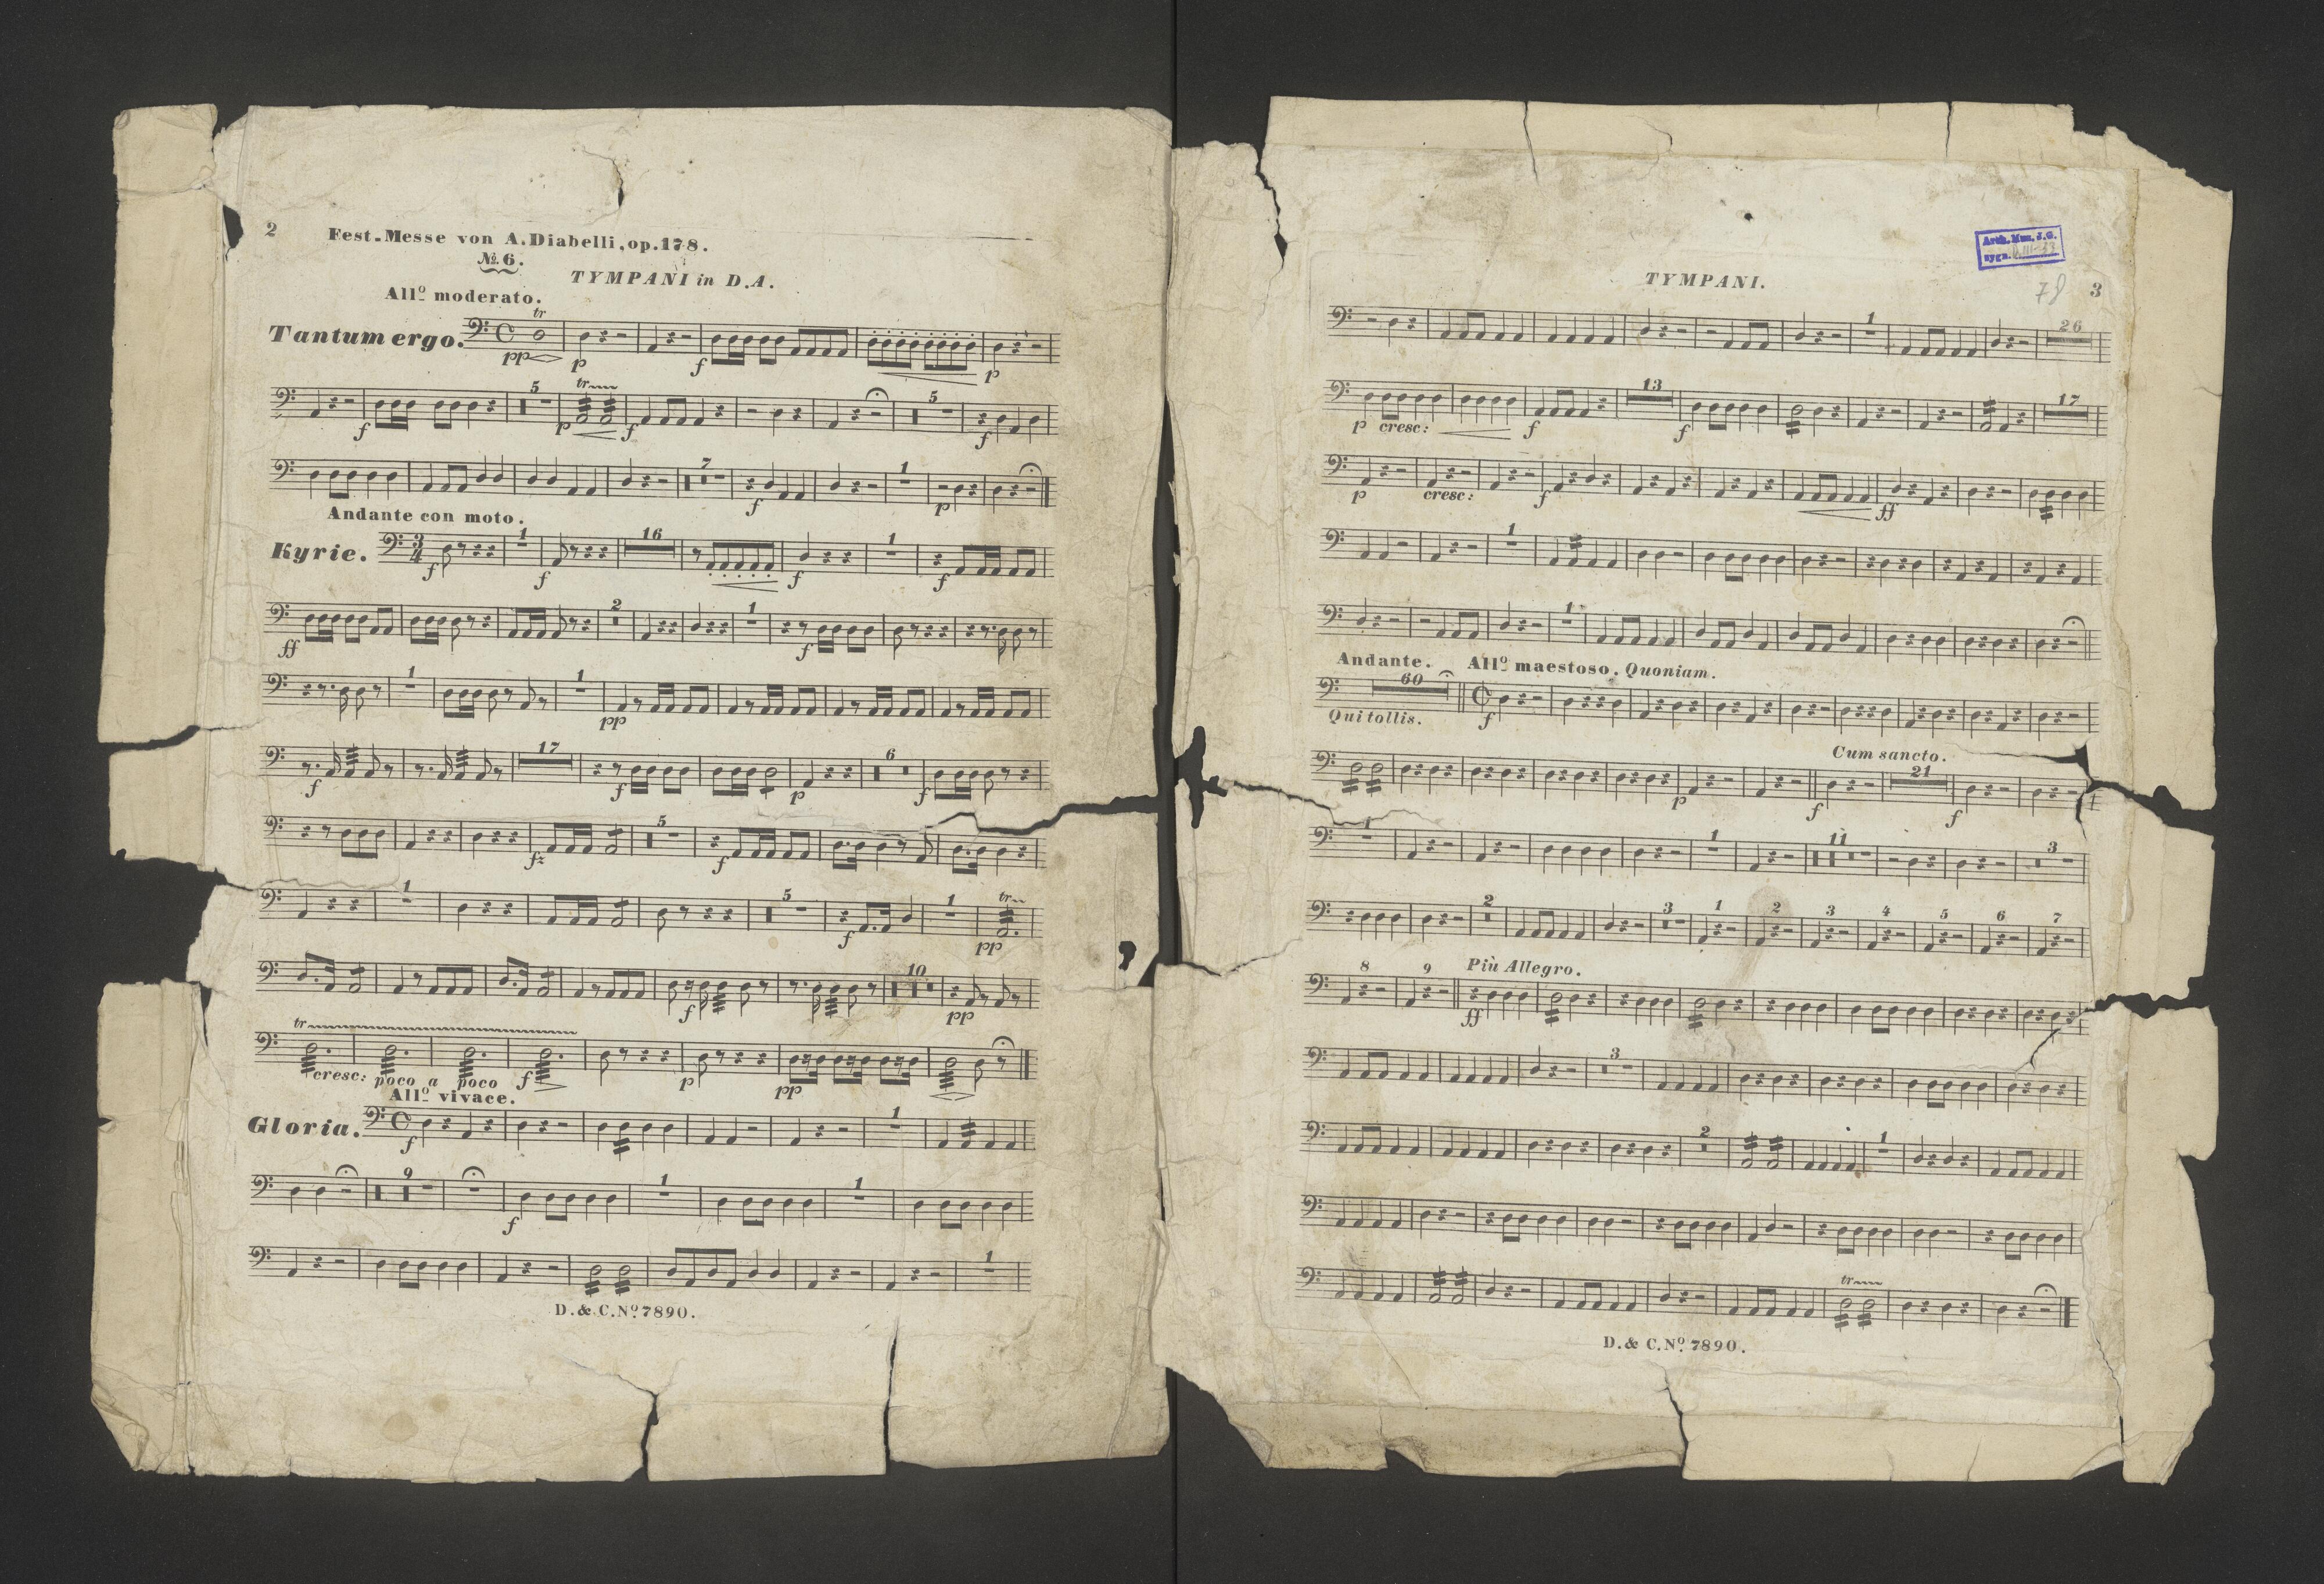 2
Fest-Messe von A. Diabelli, op. 178.
No. 6.
TYMPANI in D.A.
Allo. moderato.
tr
Tantum ergo.
pp p f p
5 tr 5
f p f f
7 1
f p
Andante con moto.
Kyrie.
1 16 1
f f f f
2 1
ff f
1 1
pp
17 6
f f p f
5
fz f
1 5 1 tr
f pp
10
f pp
tr
cresc: poco a poco f p pp
Allo. vivace.
Gloria.
1
f
9 1 1
f
1
D. & C. No. 7890.
Arch. Muz. J.G.
sygn.
78
TYMPANI.
3
1 26
13 17
p cresc: f f
p cresc: f ff
1
1
Andante. Allo. maestoso. Quoniam.
60
Qui tollis. f
Cum sancto.
21
p f f
1 1 11 3
2 3 1 2 3 4 5 6 7
8 9 Più Allegro.
ff
3
2 1
tr
D. & C. No. 7890.